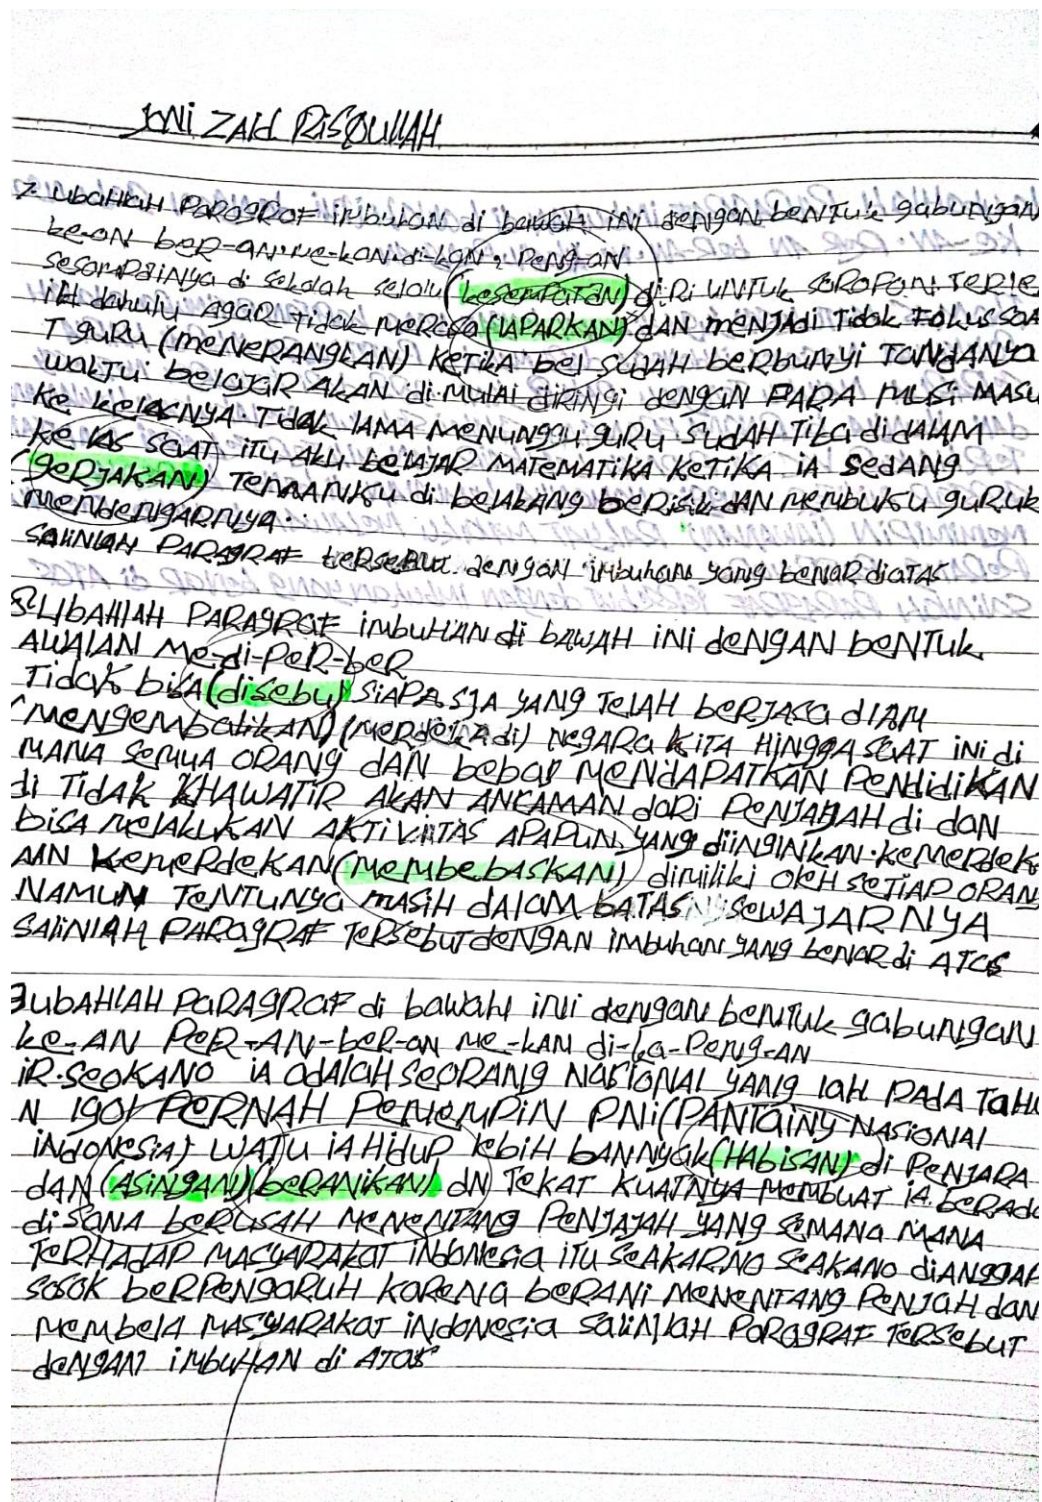 JONi ZAid RiSQULLAH
7. UbaHlaH PaRagRaF imbuhan di bawaH iNi dengan beNTuk gabungan
ke-an beR-an. me-kan. di-kan, Peng-an
sesampainya di Sekolah selalu (kesempatan) diRi UNTUK SaRaPaN TeRle
iH dahulu agaR Tidak meRasa (lAPARKAN) dAN meNJAdi Tidak FOkus saa
T guRu (MeNERANgkAN) KeTika bel SudAH beRbunyi TaNdANya
wakTu belajaR AkAN di-MulAi diRingi dengan PARA MuSi MASU
Ke kelasnya Tidak lAMA MeNuNggu guRu SudAH Tiba didAlAM
Ke las SaAT iTu Aku belAjAR MATeMATikA KeTikA iA SedANg
(geRJAKAN) TeMANKu di belakang beRisik dAN Membuku guRuk
MendengaRnya.
SAliNlAH PARAgRAF TeRSebuT. dengan imbuhan yang beNAR diATAS
8. UbAHlAH PARAgRaF imbuHAN di bAWAH iNi deNgAN beNTuk.
AWAlAN Me-di-PeR-beR
Tidak bisA (disebu) SiAPA SJA YANg TelAH beRJASa diAM
(MeNgeMbalikAN) (MeRdeKA di) NegARA KiTA HiNggA SaAT iNi di
MANA SeMuA ORANg dAN bebas MeNdAPATkAN PeNdidiKAN
di TidAk KHAWATiR AKAN ANCAMAN daRi PeNJAJAH di dan
biSa MelAkukAN AKTiViTAS APAPUN YANg diiNgiNkAN. KeMeRdeK
AAN KeMeRdeKAN (MeMbebASKAN) diMiliki OleH SeTiAP ORANg
NAMUN TeNTuNya MASiH dAlAM bATASNy SeWAJARNYA
SAliNlAH PARAgRAF TeRSebuT deNgAN iMbuhan yANg beNaR di ATAS
3 UbAHlAH PaRAgRAF di bawaH iNi deNgaN beNTuk gabuNgAN
ke-AN PeR-AN-beR-an Me-kAN di-ka-PeNg-AN
iR. SeOKANO iA adAlAH SeORANg NASiONAl YANg laH PAdA TaHu
N 1901 PeRNAH PeMeMPiN PNi (PANTaiNy NASiONAl
iNdONeSiA) WATu iA HiduP lebiH bANNyak (HAbiSAN) di PeNJARA
dAN (ASiNgAN) (beRANiKAN) dN TeKAT KuATNyA MeMbuAT iA. beRAda
di SANA beRuSAH MeNeNTANg PeNJAJAH YANg SeMANA MANA
TeRHAdAP MASyARAkaT iNdONeSia iTu SeAkARNO SeAkANO diANggAP
SOSOk beRPeNgaRuH KaReNa beRANi MeNeNTANg PeNJaH dan
MeMbelA MASyARAkaT iNdONeSia SaliNlaH PaRagRAF TeRSebuT
deNgAN iMbuHAN di ATAS